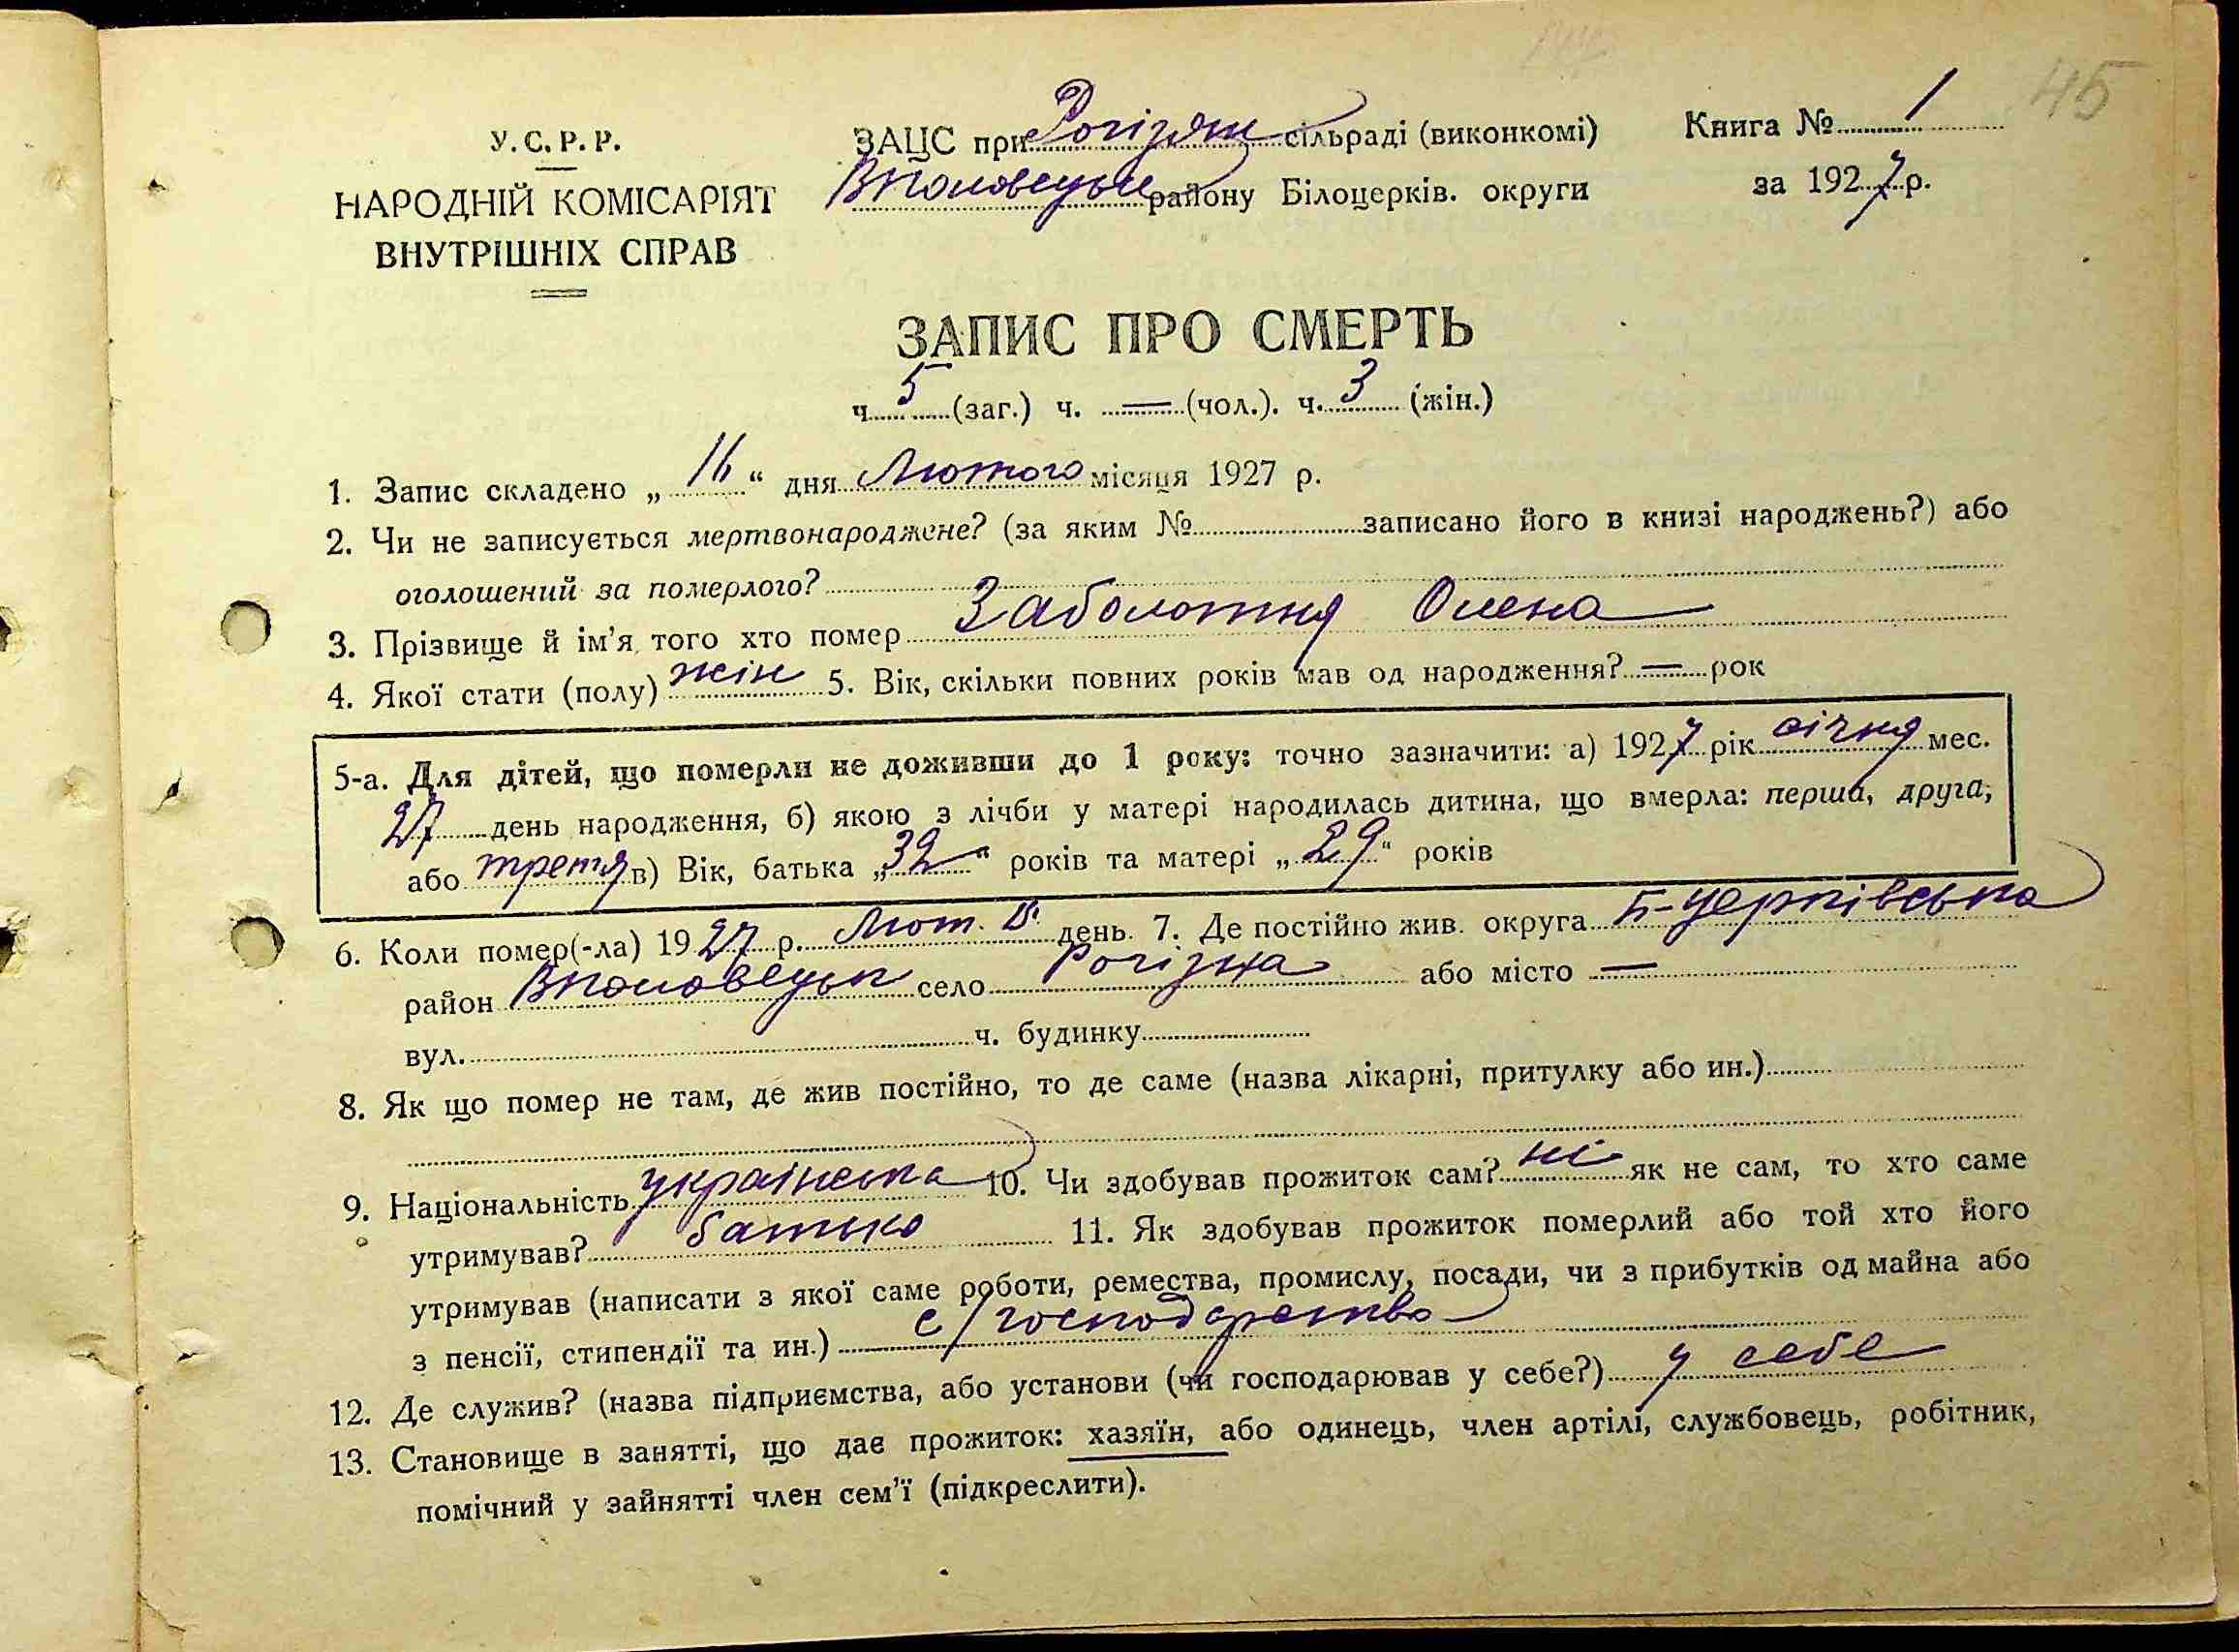 45
У. С. Р. Р.
НАРОДНІЙ КОМІСАРІЯТ
ВНУТРІШНІХ СПРАВ
ЗАЦС при Рогізян сільраді (виконкомі)
Вполовецьк району Білоцерків. округи
Книга № 1
за 1927 р.
ЗАПИС ПРО СМЕРТЬ
ч. 5 (заг.) ч. — (чол.). ч. 3 (жін.)
1. Запис складено „ 16 “ дня Лютого місяця 1927 р.
2. Чи не записується мертвонароджене? (за яким № записано його в книзі народжень?) або
оголошений за померлого?
3. Прізвище й ім’я того хто помер Заболотня Олена
4. Якої стати (полу) жін 5. Вік, скільки повних років мав од народження? — рок
5-а. Для дітей, що померли не доживши до 1 року: точно зазначити: а) 1927 рік січня мес.
27 день народження, б) якою з лічби у матері народилась дитина, що вмерла: перша, друга,
або третя в) Вік, батька „ 32 “ років та матері „ 29 “ років
6. Коли помер(-ла) 1927 р. Лют. день. 7. Де постійно жив. округа Б-Церківська
район Вполовецьк село Рогізна або місто —
вул. ч. будинку
8. Як що помер не там, де жив постійно, то де саме (назва лікарні, притулку або ин.)
9. Національність українська 10. Чи здобував прожиток сам? ні як не сам, то хто саме
утримував? батько 11. Як здобував прожиток померлий або той хто його
утримував (написати з якої саме роботи, ремества, промислу, посади, чи з прибутків од майна або
з пенсії, стипендії та ин.) с/господарство
12. Де служив? (назва підприємства, або установи (чи господарював у себе?) у себе
13. Становище в занятті, що дає прожиток: хазяїн, або одинець, член артілі, службовець, робітник,
помічний у зайнятті член сем’ї (підкреслити).